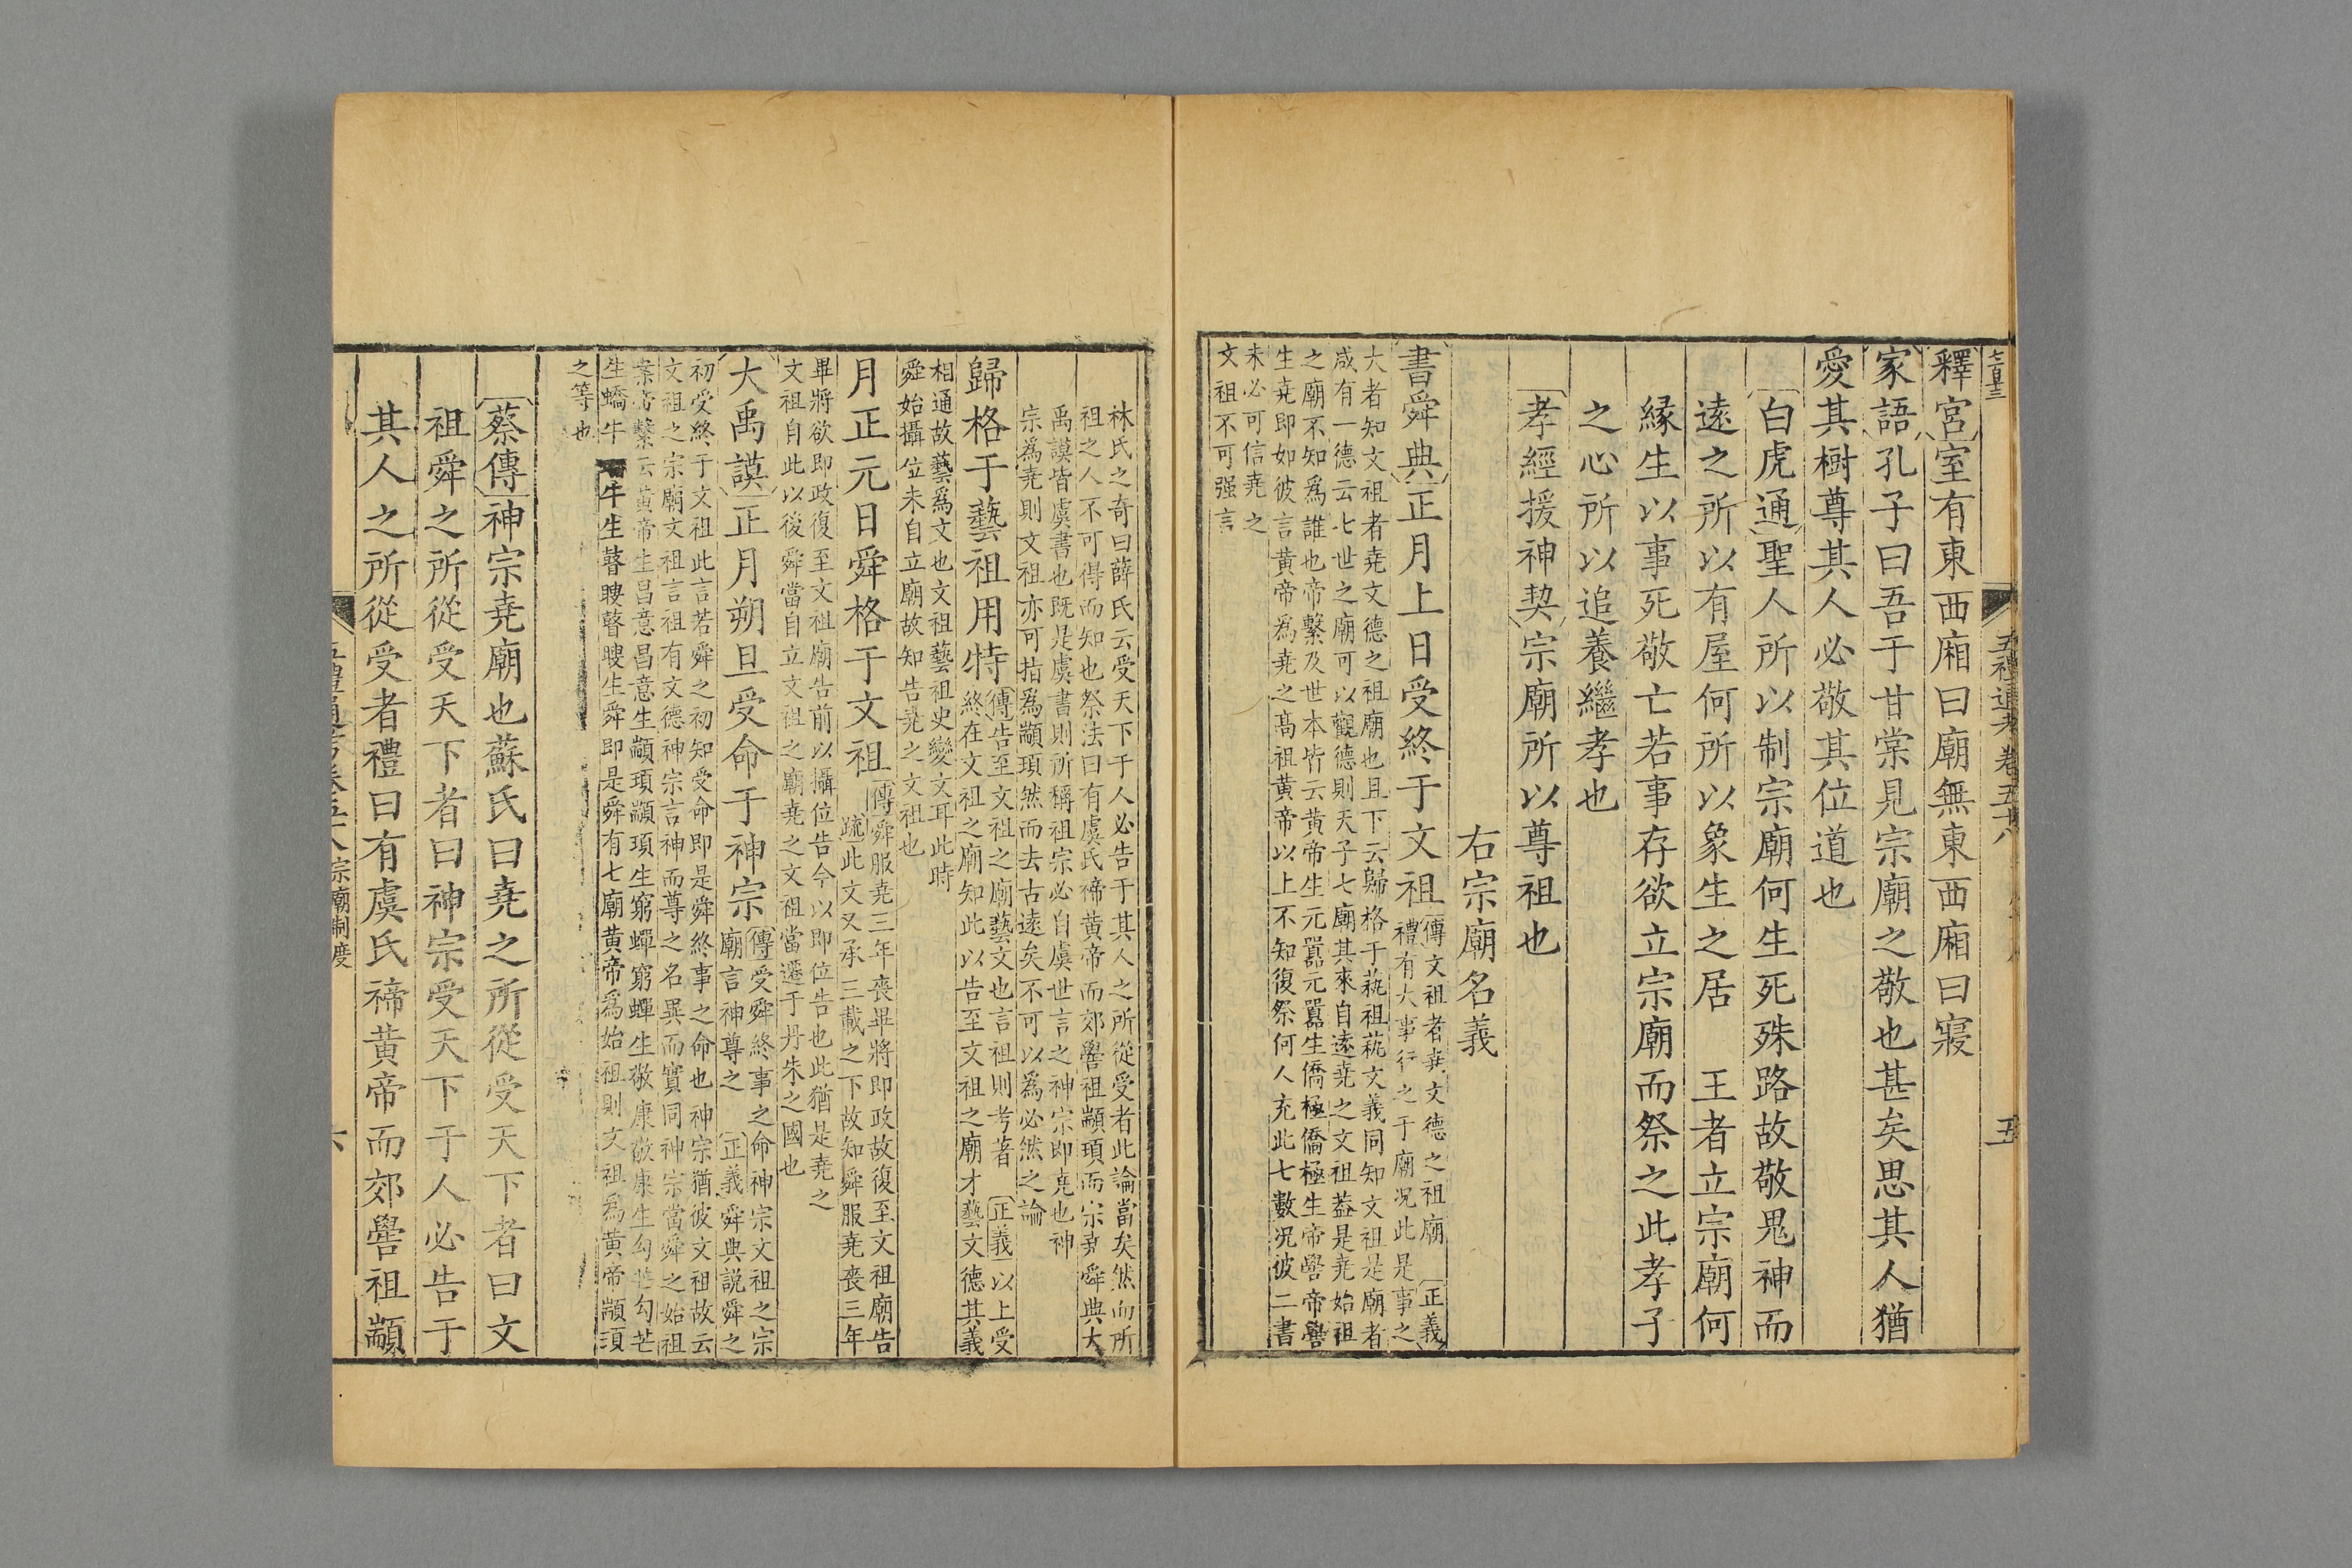 七百十三
五禮通考卷五十八
五
釋宮室有東西廂曰廟無東西廂曰寢
家語孔子曰吾于甘棠見宗廟之敬也甚矣思其人猶
愛其樹尊其人必敬其位道也
白虎通聖人所以制宗廟何生死殊路故敬鬼神而
遠之所以有屋何所以象生之居 王者立宗廟何
緣生以事死敬亡若事存欲立宗廟而祭之此孝子
之心所以追養繼孝也
孝經援神契宗廟所以尊祖也
右宗廟名義
書舜典正月上日受終于文祖傳文祖者堯文德之祖廟 正義
禮有大事行之于廟况此是事之
大者知文祖者堯文德之祖廟也且下云歸格于蓺祖蓺文義同知文祖是廟者
咸有一德云七世之廟可以觀德則天子七廟其來自遠堯之文祖葢是堯始祖
之廟不知爲誰也帝繫及世本皆云黃帝生元囂元囂生僑極僑極生帝嚳帝嚳
生堯即如彼言黃帝爲堯之髙祖黃帝以上不知復祭何人充此七數况彼二書
未必可信堯之
文祖不可强言
林氏之奇曰薛氏云受天下于人必告于其人之所從受者此論當矣然而所
祖之人不可得而知也祭法曰有虞氏禘黃帝而郊嚳祖顓頊而宗堯舜典大
禹謨皆虞書也既是虞書則所稱祖宗必自虞世言之神宗即堯也神
宗爲堯則文祖亦可指爲顓頊然而去古遠矣不可以爲必然之論
歸格于藝祖用特傳告至文祖之廟藝文也言祖則考著 正義以上受
終在文祖之廟知此以告至文祖之廟才藝文德其義
相通故藝爲文也文祖藝祖史變文耳此時
舜始攝位未自立廟故知告堯之文祖也
月正元日舜格于文祖傳舜服堯三年喪畢將即政故復至文祖廟告
疏此文又承三載之下故知舜服堯喪三年
畢將欲即政復至文祖廟告前以攝位告今以即位告也此猶是堯之
文祖自此以後舜當自立文祖之廟堯之文祖當遷于丹朱之國也
大禹謨正月朔旦受命于神宗傳受舜終事之命神宗文祖之宗
廟言神尊之 正義舜典說舜之
初受終于文祖此言若舜之初知受命即是舜終事之命也神宗猶彼文祖故云
文祖之宗廟文祖言祖有文德神宗言神而尊之名異而實同神宗當舜之始祖
案帝繫云黃帝生昌意昌意生顓頊顓頊生窮蟬窮蟬生敬康敬康生勾芒勾芒
生蟜牛 牛生瞽瞍瞽瞍生舜即是舜有七廟黃帝爲始祖則文祖爲黃帝顓頊
之等也
蔡傳神宗堯廟也蘇氏曰堯之所從受天下者曰文
祖舜之所從受天下者曰神宗受天下于人必告于
其人之所從受者禮曰有虞氏禘黃帝而郊嚳祖顓
五禮通考卷五十八宗廟制度
六